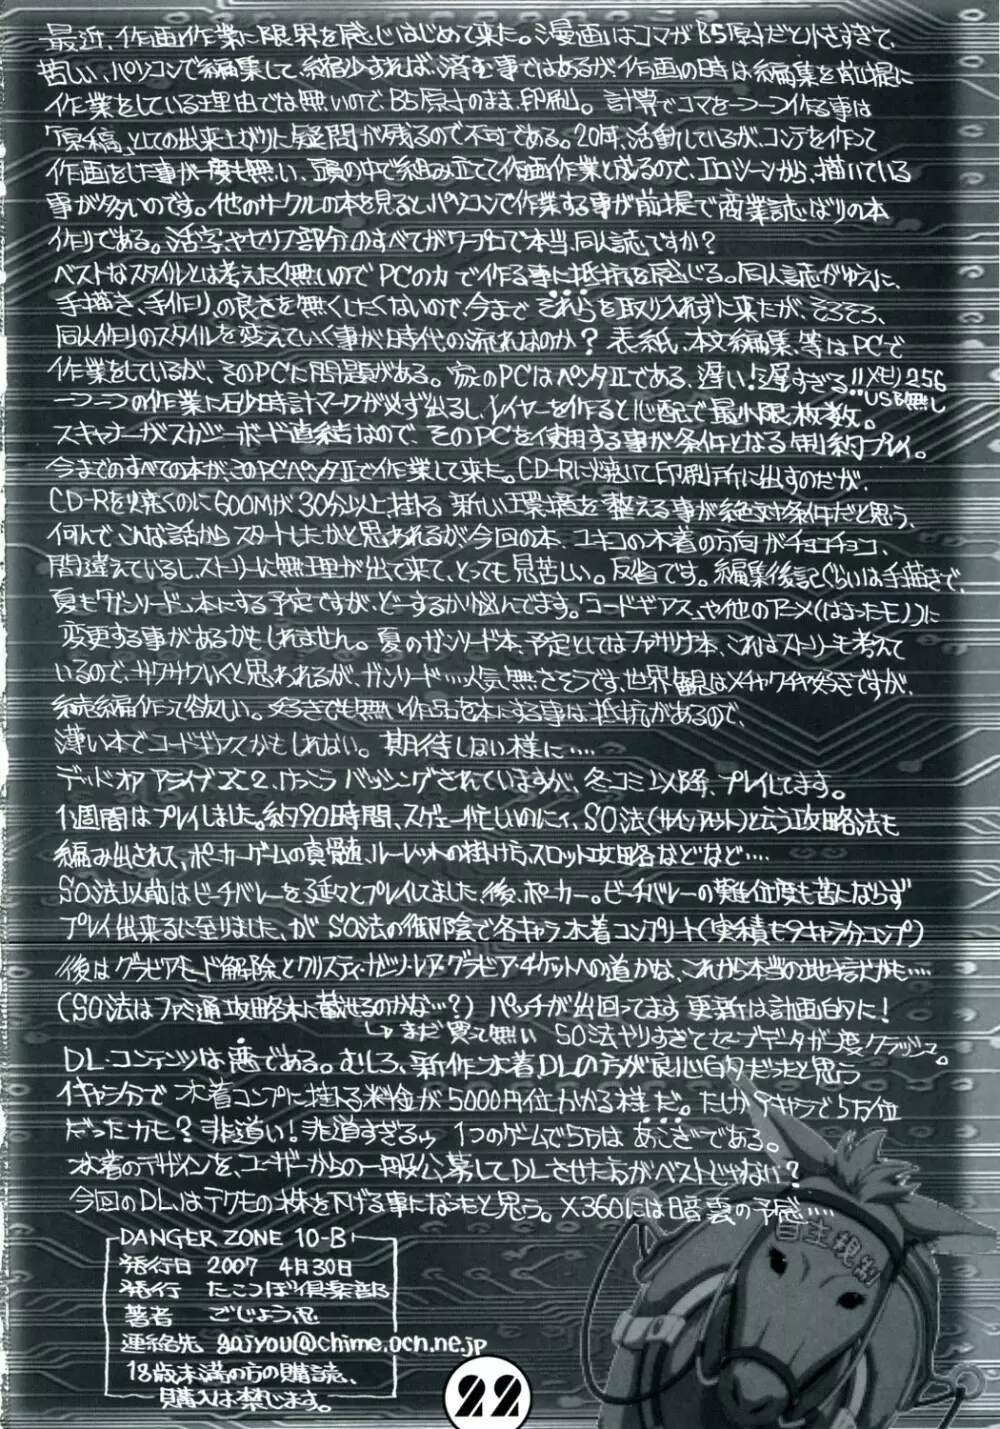 最近、作画作業に限界を感じはじめて来た。漫画はコマがB5原寸だと小さすぎて、
苦しい、パソコンで編集して、縮少すれば…済む事ではあるが、作画の時は編集を前提に
作業をしている理由では無いのでB5原寸のまま、印刷。計算でコマを一つ一つ作る事は
「原稿」としての出来上がりに疑問が残るので不可である。20年、活動しているが、コンテを作って
作画をした事が一度も無い、頭の中で組み立てて作画作業と成るので、エロシーンから、描いている
事が多いのです。他のサークルの本を見ると、パソコンで作業する事が前提で商業誌ばりの本
作りである。活字やセリフ部分のすべてがワープロで本当、同人誌ですか?
ベストなスタイルとは考えたく無いのでPCの力で作る事に抵抗を感じる。同人誌がゆえに、
手描き、手作りの良さを無くしたくないので、今までそれらを取り入れずに来たが、そろそろ、
同人作りのスタイルを変えていく事が時代の流れなのか?表紙、本文編集、等はPCで
作業をしているが、そのPCに問題がある。家のPCはペンタIIである、遅い!遅すぎる!!メモリ256
USB無し
一つ一つの作業に砂時計マークが必ず出るし、レイヤーを作ると心配で最小限枚数。
スキャナーがスカジーボード直結なので、そのPCを使用する事が条件となる制約プレイ。
今までのすべての本が、このPCペンタIIで作業して来た。CD-Rに焼いて印刷所に出すのだが、
CD-Rを焼くのに600Mが30分以上掛る 新しい環境を整える事が絶対条件だと思う、
何んで、こんな話からスタートしたかと思われるが今回の本、ユキコの水着の方向がチョコチョコ、
間違えているし、ストーリーに無理が出て来て、とっても見苦しい。反省です。編集後記ぐらいは手描きで、
夏も「ガンソード」本にする予定ですが、どーするか悩んでます。「コードギアス」や他のアニメ(はまったモノ)に
変更する事があるかもしれません。夏のガンソード本、予定としてはファサリナ本、これはストーリーも考えて
いるので、サクサクいくと思われるが、ガンソード……人気、無さそうです、世界観はメチャクチャ好きですが、
続編作って欲しい。好きでも無い作品を本にする事は抵抗があるので、
薄い本でコードギアスかもしれない。期待しない様に….
デッドオアアライブX2、けっこうバッシングされていますが、冬コミ以降、プレイしてます。
1週間はプレイしました。約90時間、スゲェー忙しいのにィ、SO法(サインアウト)と云う攻略法も
編み出されて、ポーカーゲームの真髄、ルーレットの掛け方、スロット攻略などなど….
SO法以前はビーチバレーを延々とプレイしてました、後、ポーカー。ビーチバレーの難位度も苦にならず
プレイ出来るに至りました、が SO法の御陰で各キャラ水着コンプリート(実積も9キャラ分コンプ)
後はグラビアモード解除とクリスティ・ゼリソ・レア・グラビア・チケットへの道かな、これから本当の地獄かも….
(SO法はファミ通攻略本に載せるのかな…?) パッチが出回ってます 更新は計画的に!
まだ買って無い SO法ヤりすぎてセーブデータが一度クラッシュ。
DL・コンテンツは悪である。むしろ、新作水着DLの方が良心的だったと思う
1キャラ分で 水着コンプに掛る料金が5000円位かかる様だ。たしか9キャラで5万位
だったカモ?非道い!非道すぎるゥ 1つのゲームで5万は あこぎである。
水着のデザインを、ユーザーからの一般公募してDLさせた方がベストじゃない?
今回のDLはテクモの株を下げる事になったと思う。X360には暗雲の予感….
自主規制
DANGER ZONE 10-B
発行日 2007 4月30日
発行 たこつぼ倶楽部
著者 ごじょう忍
連絡先 gojyou@chime.ocn.ne.jp
18歳未満の方の購読、
購入は禁じます。
22